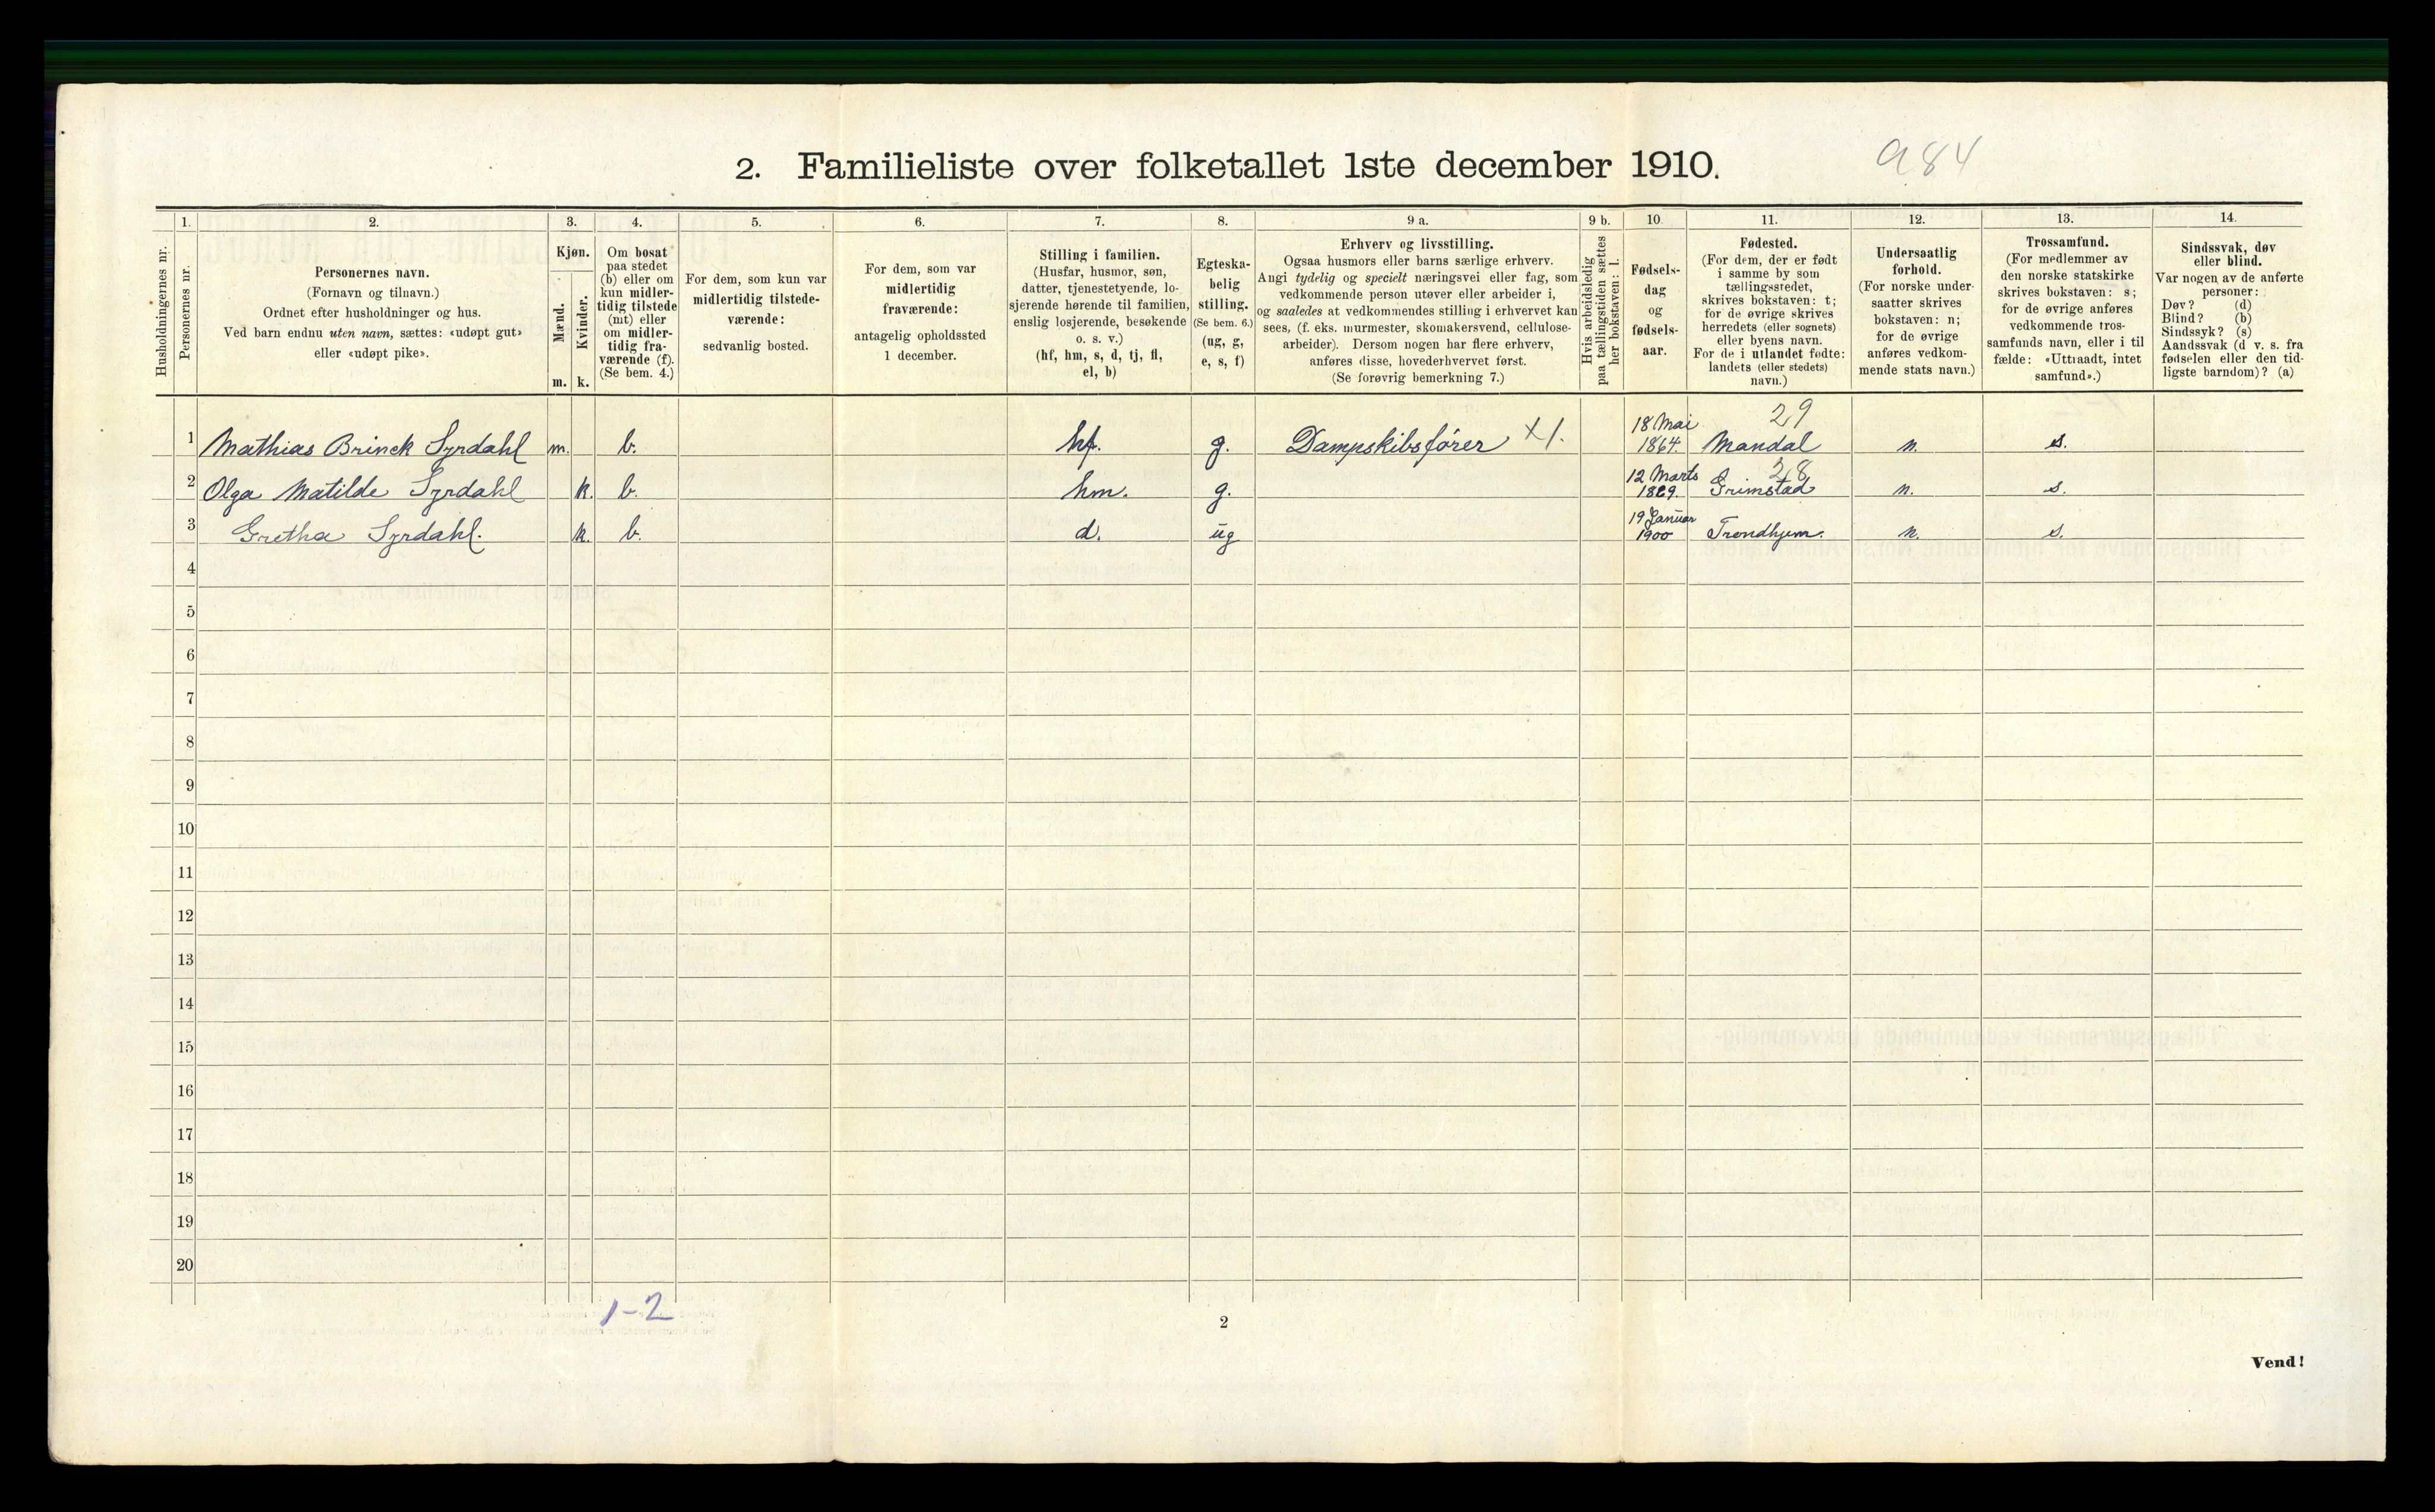 984
2. Familieliste over folketallet 1ste december 1910.
1. 2. 3. 4. 5. 6. 7. 8. 9 a. 9 b. 10. 11. 12. 13. 14.
Husholdningernes nr.
Personernes nr.
Personernes navn.
(Fornavn og tilnavn.)
Ordnet efter husholdninger og hus.
Ved barn endnu uten navn, sættes: «udøpt gut»
eller «udøpt pike».
Kjøn.
Mænd.
Kvinder.
m. k.
Om bosat
paa stedet
(b) eller om
kun midler-
tidig tilstede
(mt) eller
om midler-
tidig fra-
værende (f).
(Se bem. 4.)
For dem, som kun var
midlertidig tilstede-
værende:
sedvanlig bosted.
For dem, som var
midlertidig
fraværende:
antagelig opholdssted
1 december.
Stilling i familien.
(Husfar, husmor, søn,
datter, tjenestetyende, lo-
sjerende hørende til familien,
enslig losjerende, besøkende
o. s. v.)
(hf, hm, s, d, tj, fl,
el, b)
Egteska-
belig
stilling.
(Se bem. 6.)
(ug, g,
e, s, f)
Erhverv og livsstilling.
Ogsaa husmors eller barns særlige erhverv.
Angi tydelig og specielt næringsvei eller fag, som
vedkommende person utøver eller arbeider i,
og saaledes at vedkommendes stilling i erhvervet kan
sees, (f. eks. murmester, skomakersvend, cellulose-
arbeider). Dersom nogen har flere erhverv,
anføres disse, hovederhvervet først.
(Se forøvrig bemerkning 7.)
Hvis arbeidsledig
paa tællingstiden sættes
her bokstaven: l.
Fødsels-
dag
og
fødsels-
aar.
Fødested.
(For dem, der er født
i samme by som
tællingsstedet,
skrives bokstaven: t;
for de øvrige skrives
herredets (eller sognets)
eller byens navn.
For de i utlandet fødte:
landets (eller stedets)
navn.)
Undersaatlig
forhold.
(For norske under-
saatter skrives
bokstaven: n;
for de øvrige
anføres vedkom-
mende stats navn.)
Trossamfund.
(For medlemmer av
den norske statskirke
skrives bokstaven: s;
for de øvrige anføres
vedkommende tros-
samfunds navn, eller i til
fælde: «Uttraadt, intet
samfund».)
Sindssvak, døv
eller blind.
Var nogen av de anførte
personer:
Døv? (d)
Blind? (b)
Sindssyk? (s)
Aandssvak (d v. s. fra
fødselen eller den tid-
ligste barndom)? (a)
1 Mathias Brinck Syrdahl m. b. hf. g. Dampskibsfører X1. 18 Mai 1864. 29 Mandal n. s.
2 Olga Matilde Syrdahl k. b. hm. g. 12 Marts 28 Grimstad n. s.
3 Gretha Syrdahl. k. b. d. ug 19 Januar 1900 Trondhjem. n. s.
4
5
6
7
8
9
10
11
12
13
14
15
16
17
18
19
20
1-2
2
Vend!